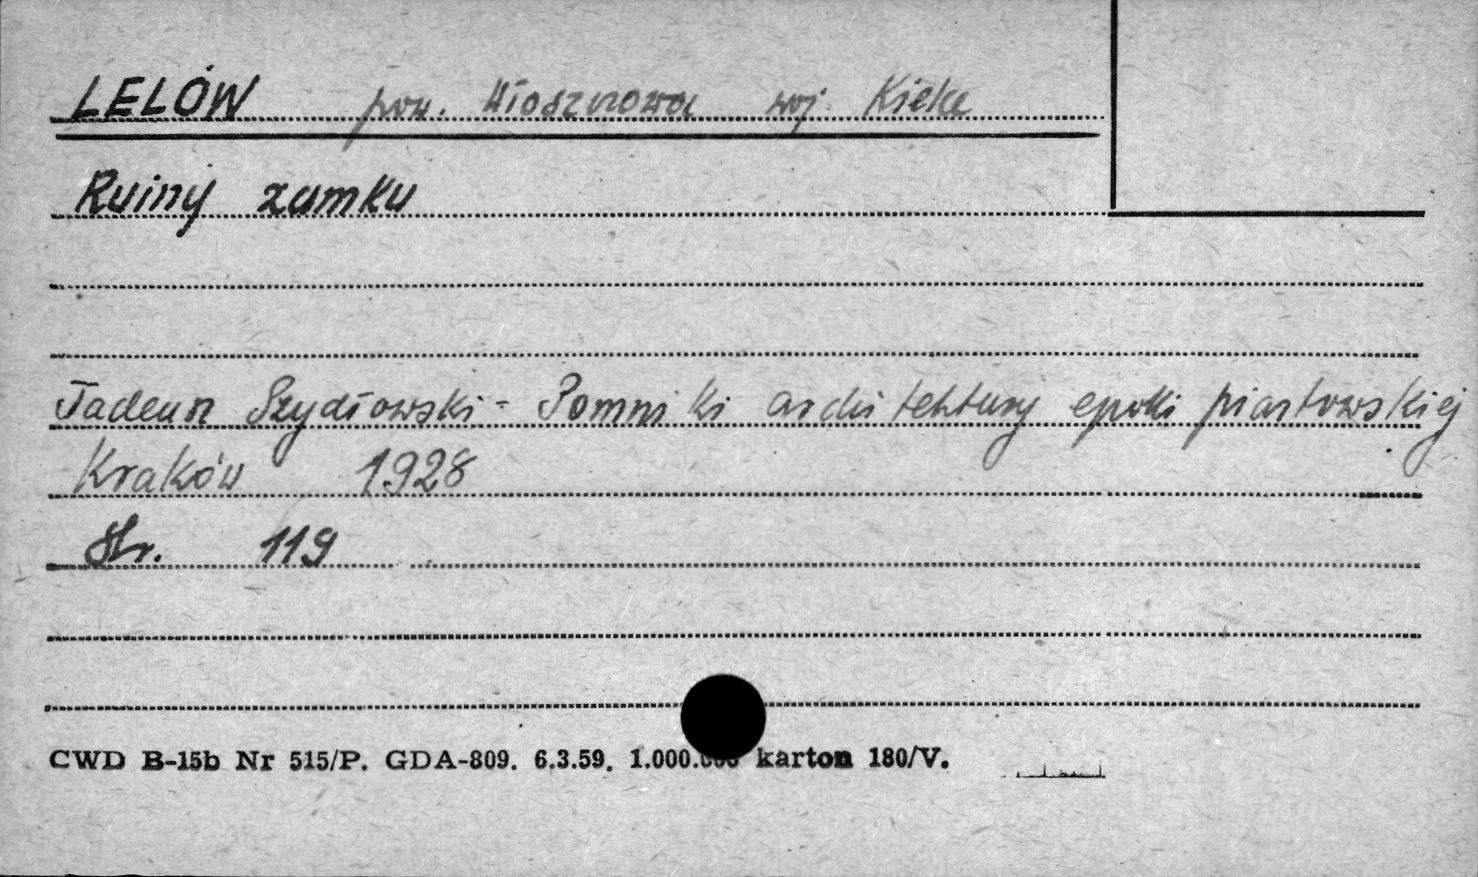 LELÓW pow. Włoszczowa woj. Kielce
Ruiny zamku
Tadeusz Szydłowski - Pomniki architektury epoki piastowskiej
Kraków 1928
Str. 119
CWD B-15b Nr 515/P. GDA-809. 6.3.59. 1.000.000 karton 180/V.